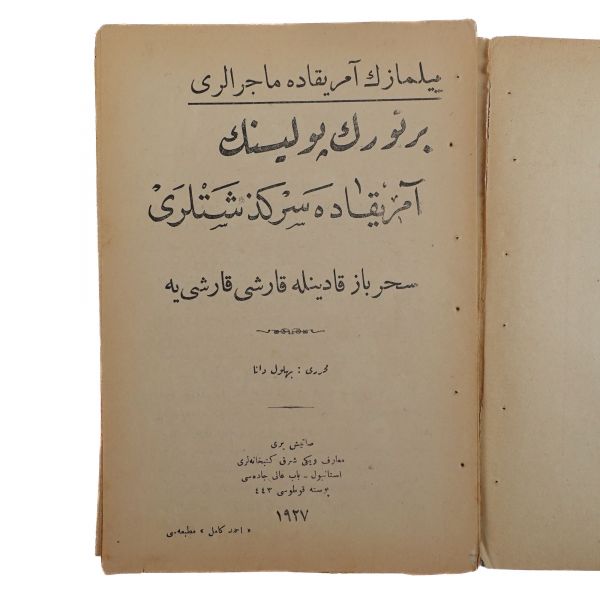 ییلمازك آمریقاده ماجرالری
بر تورك پولیسنك
آمریقاده سرکذشتلری
سحرباز قادینله قارشی قارشی یه
محرری : بهلول دانا
صاتیش یری
معارف و یکی شرق کتبخانه‌لری
استانبول - باب عالی جاده‌سی
پوسته قوطوسی ٤٤٣
١٩٢٧
« احمد کامل » مطبعه‌سی